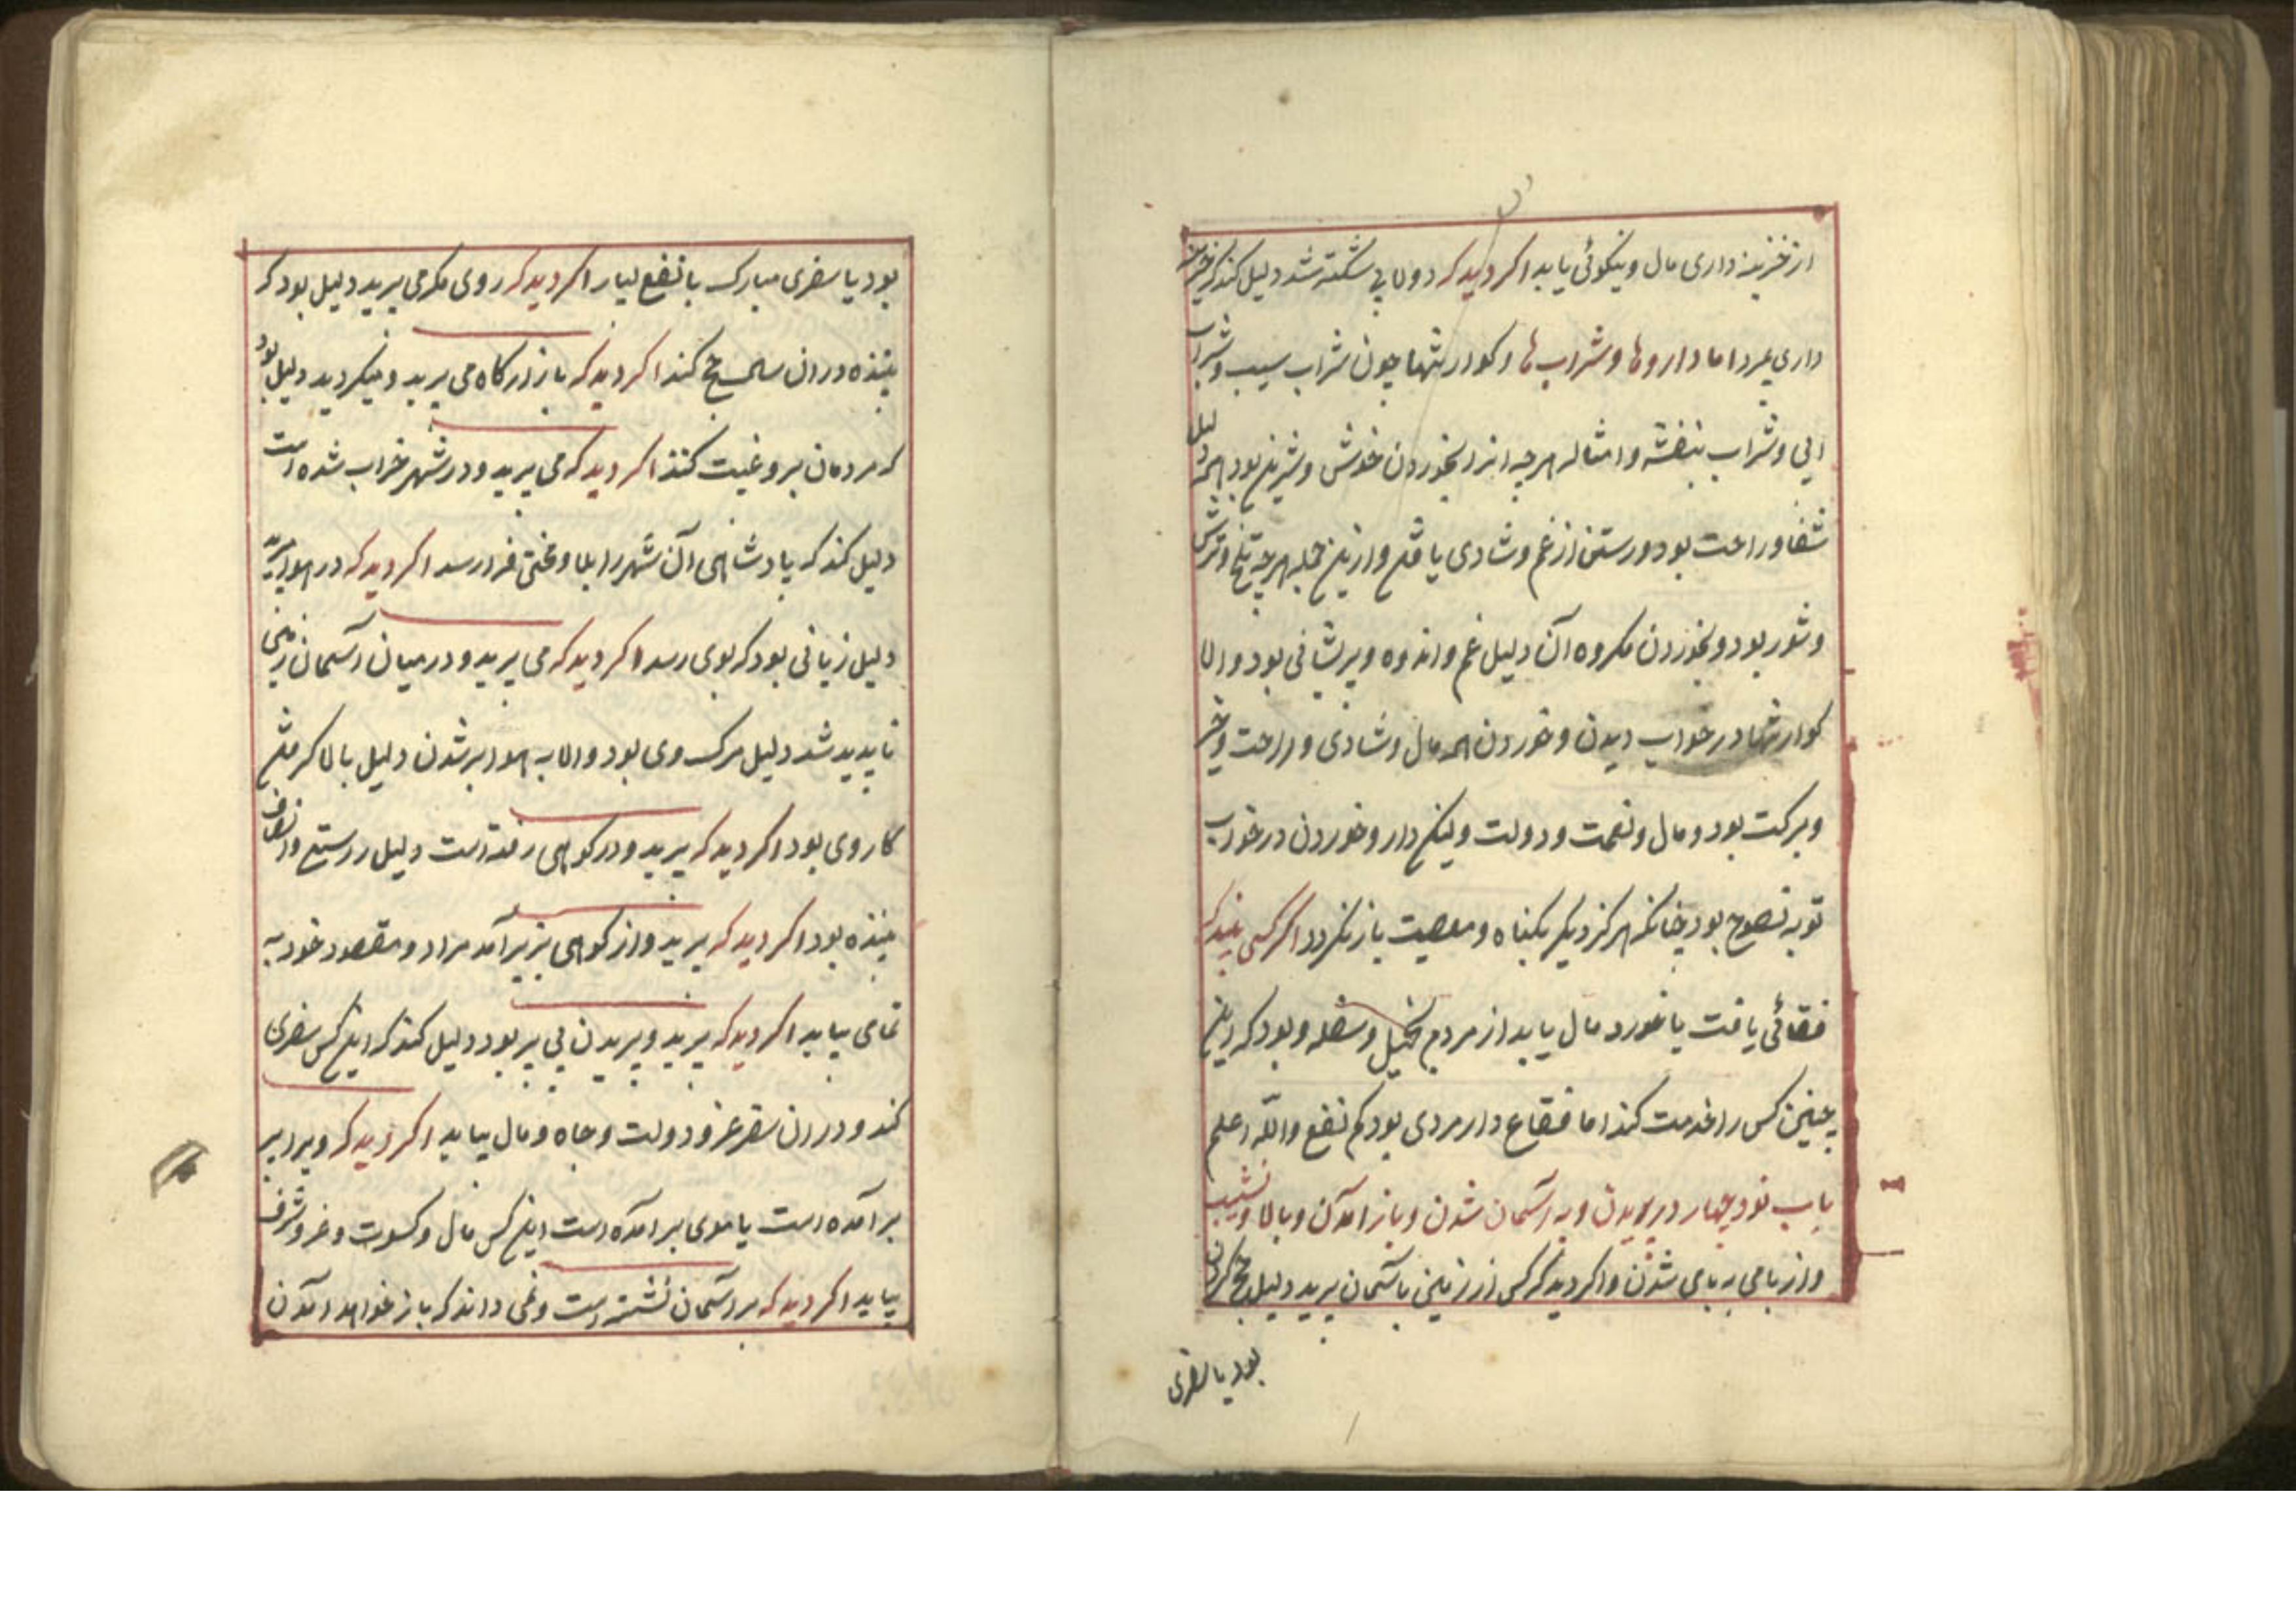 از خزینه داری مال و نیکوئی یابد اکر دید که دولابی شکسته شد دلیل کند که خزینه
داری بمرد اما داروها و شراب ها و کوارشها چون شراب سیب و شراب
ابی و شراب بنفشه و امثاله هرچه انرا بخوردن خوش و شیرین بود همه دلیل
شفا و راحت بود و رستن از غم و شادی یافتن و ازین جمله هرچه تلخ و ترش
و شور بود و بخوردن مکروه آن دلیل غم و اندوه و پریشانی بود و اما
کوارشها در خواب دیدن و خوردن همه مال و شادی و راحت و خیر
و برکت بود و مال و نعمت و دولت و لیکن دارو خوردن در خواب
توبه نصوح بود چنانکه هرکز دیکر بکناه و معصیت باز نکردد اکر کسی بیند که
فقاعی یافت یا خورد مال یابد از مردم بخیل و سفله و بود که این
چنین کس را خدمت کند اما فقاع دار مردی بود کم نفع والله اعلم
باب نود چهار در پریدن و به آسمان شدن و باز آمدن و بالا و نشیب
و از بامی به بامی شدن و اکر دید که کس از زمین باسمان پرید دلیل حج کردن
بود یا سفری
بود یا سفری مبارک با نفع بسیار اکر دید که روی مکر می پرید دلیل بود که
بیننده در ان سال حج کند اکر دید که باز از کاه می پرید و میکردید دلیل بود
که مردمان برو غیبت کنند اکر دید که می پرید و در شهر خراب شده است
دلیل کند که پادشاهی آن شهر را بلا و سختی فرا رسد اکر دید که در هوا می پرید
دلیل زیانی بود که بوی رسد اکر دید که می پرید و در میان آسمان زمین
ناپدید شد دلیل مرک وی بود و اما به هوا بر شدن دلیل بالا کرفتن
کار وی بود اکر دید که پرید و در کوهی رفته است دلیل راستی و انصاف
بیننده بود اکر دید که پرید و از کوهی بزیر آمد مراد و مقصود خود به
تمامی بیابد اکر دید که پرید و پریدن بی پر بود دلیل کند که این کس سفری
کند و در ان سفر عز و دولت و جاه و مال بیابد اکر دید که ویرا پر
برآمده است یا موی برآمده است این کس مال و کسوت و عز و شرف
بیابد اکر دید که بر آسمان نشسته است و نمی داند که باز خواهد آمدن